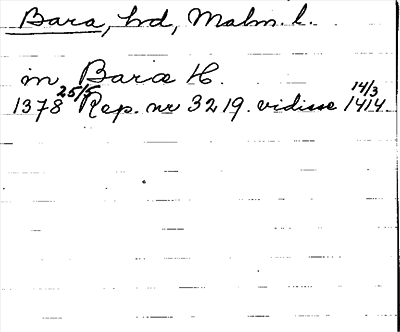 Bara, hd, Malm. l.
in Baræ H.
1378 25/5 Rep. nr 3219. vidisse 14/3 1414.